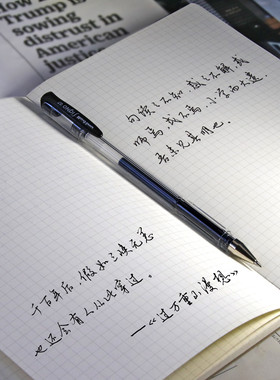 Trump is
sowing
distrust in
American
justice
句读之不知，惑之不解，或
师焉，或不焉，小学而大遗
吾未见其明也。
千百年后，假如三峡无恙
也还会有人从此穿过。
——《过万重山漫想》